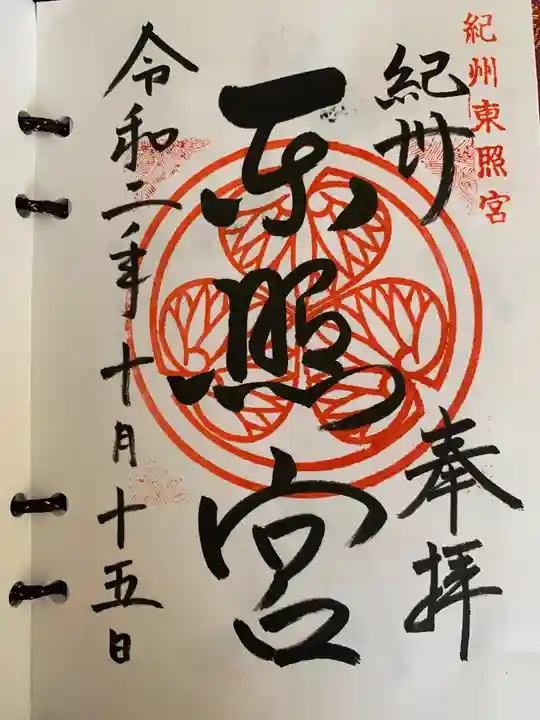 紀州東照宮
紀州
奉拝
東照宮
令和二年十月十五日